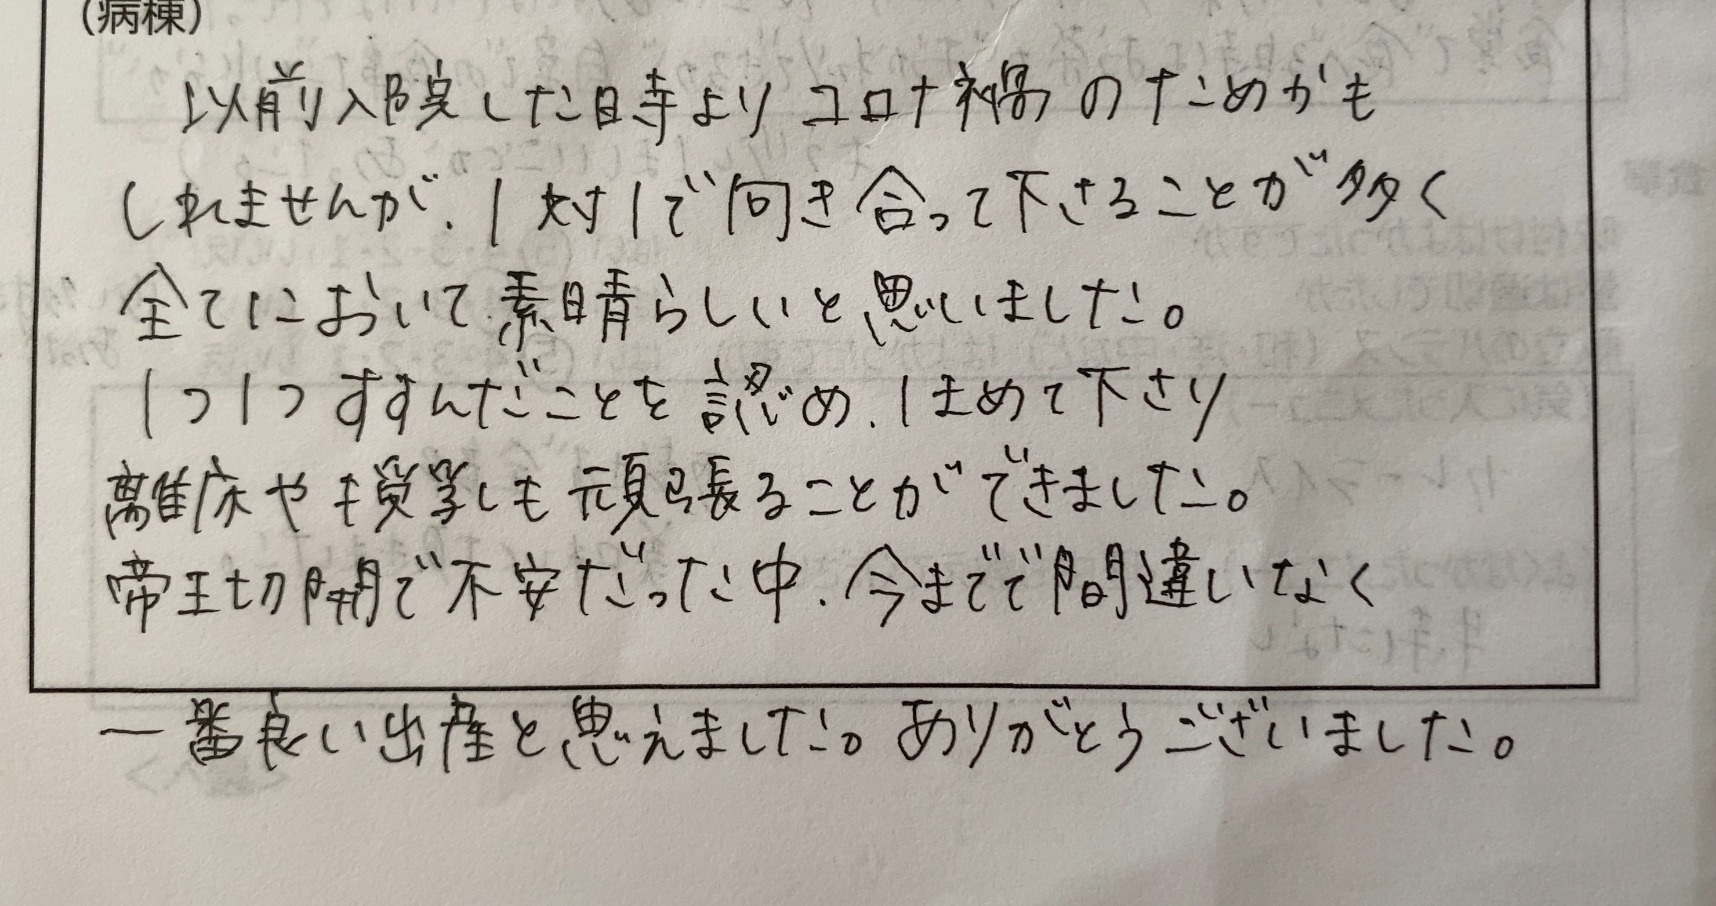 (病棟)
以前入院した時よりコロナ禍のためかも
しれませんが、1対1で向き合って下さることが多く
全てにおいて素晴らしいと思いました。
1つ1つすすんだことを認め、ほめて下さり
離床や授乳も頑張ることができました。
帝王切開で不安だった中、今までで間違いなく
一番良い出産と思えました。ありがとうございました。